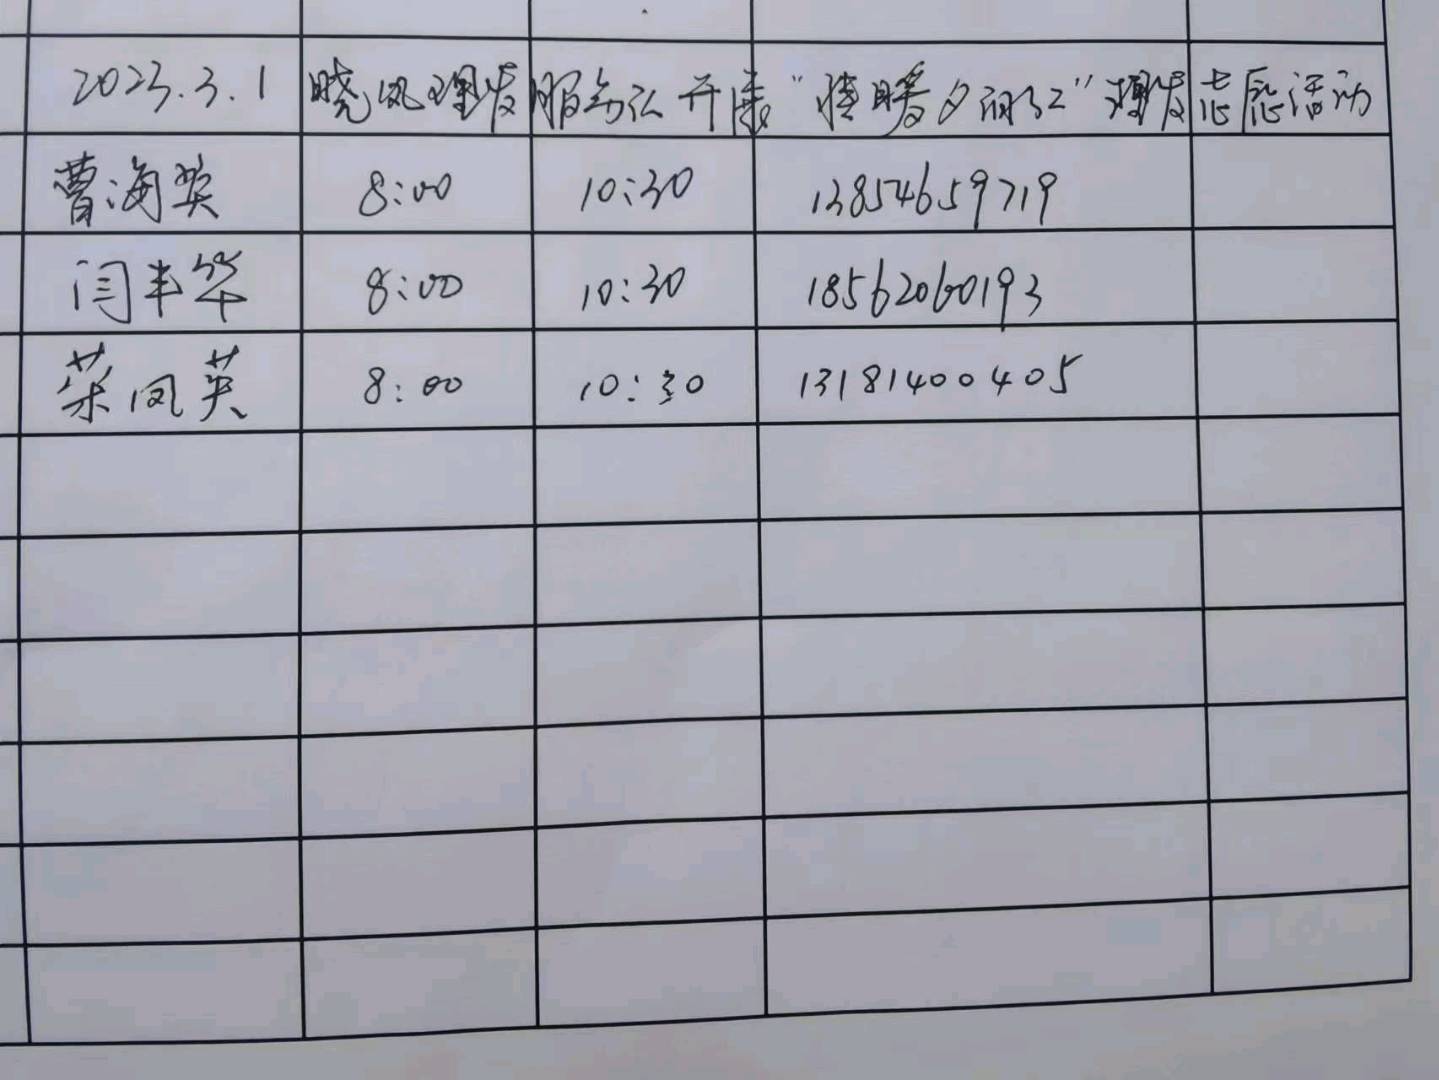 2023.3.1 晓风理发服务队开展“情暖夕阳红”理发志愿活动
曹海英 8:00 10:30 13854659719
闫丰华 8:00 10:30 18562060193
荣凤英 8:00 10:30 13181400405